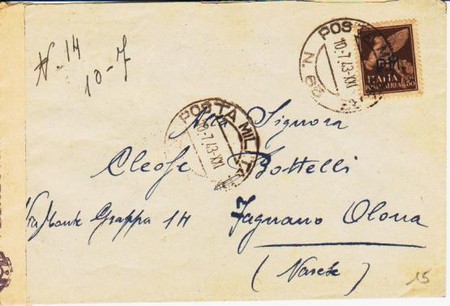 N. 14
10-7
POSTA MILITARE N. 39
10.7.43-XXI
P.M.
ITALIA
POSTA AEREA
50
POSTA MILITA
10.7.43-XXI
Alla Signora
Cleofe Bottelli
Via Monte Grappa 14
Fagnano Olona
(Varese)
15